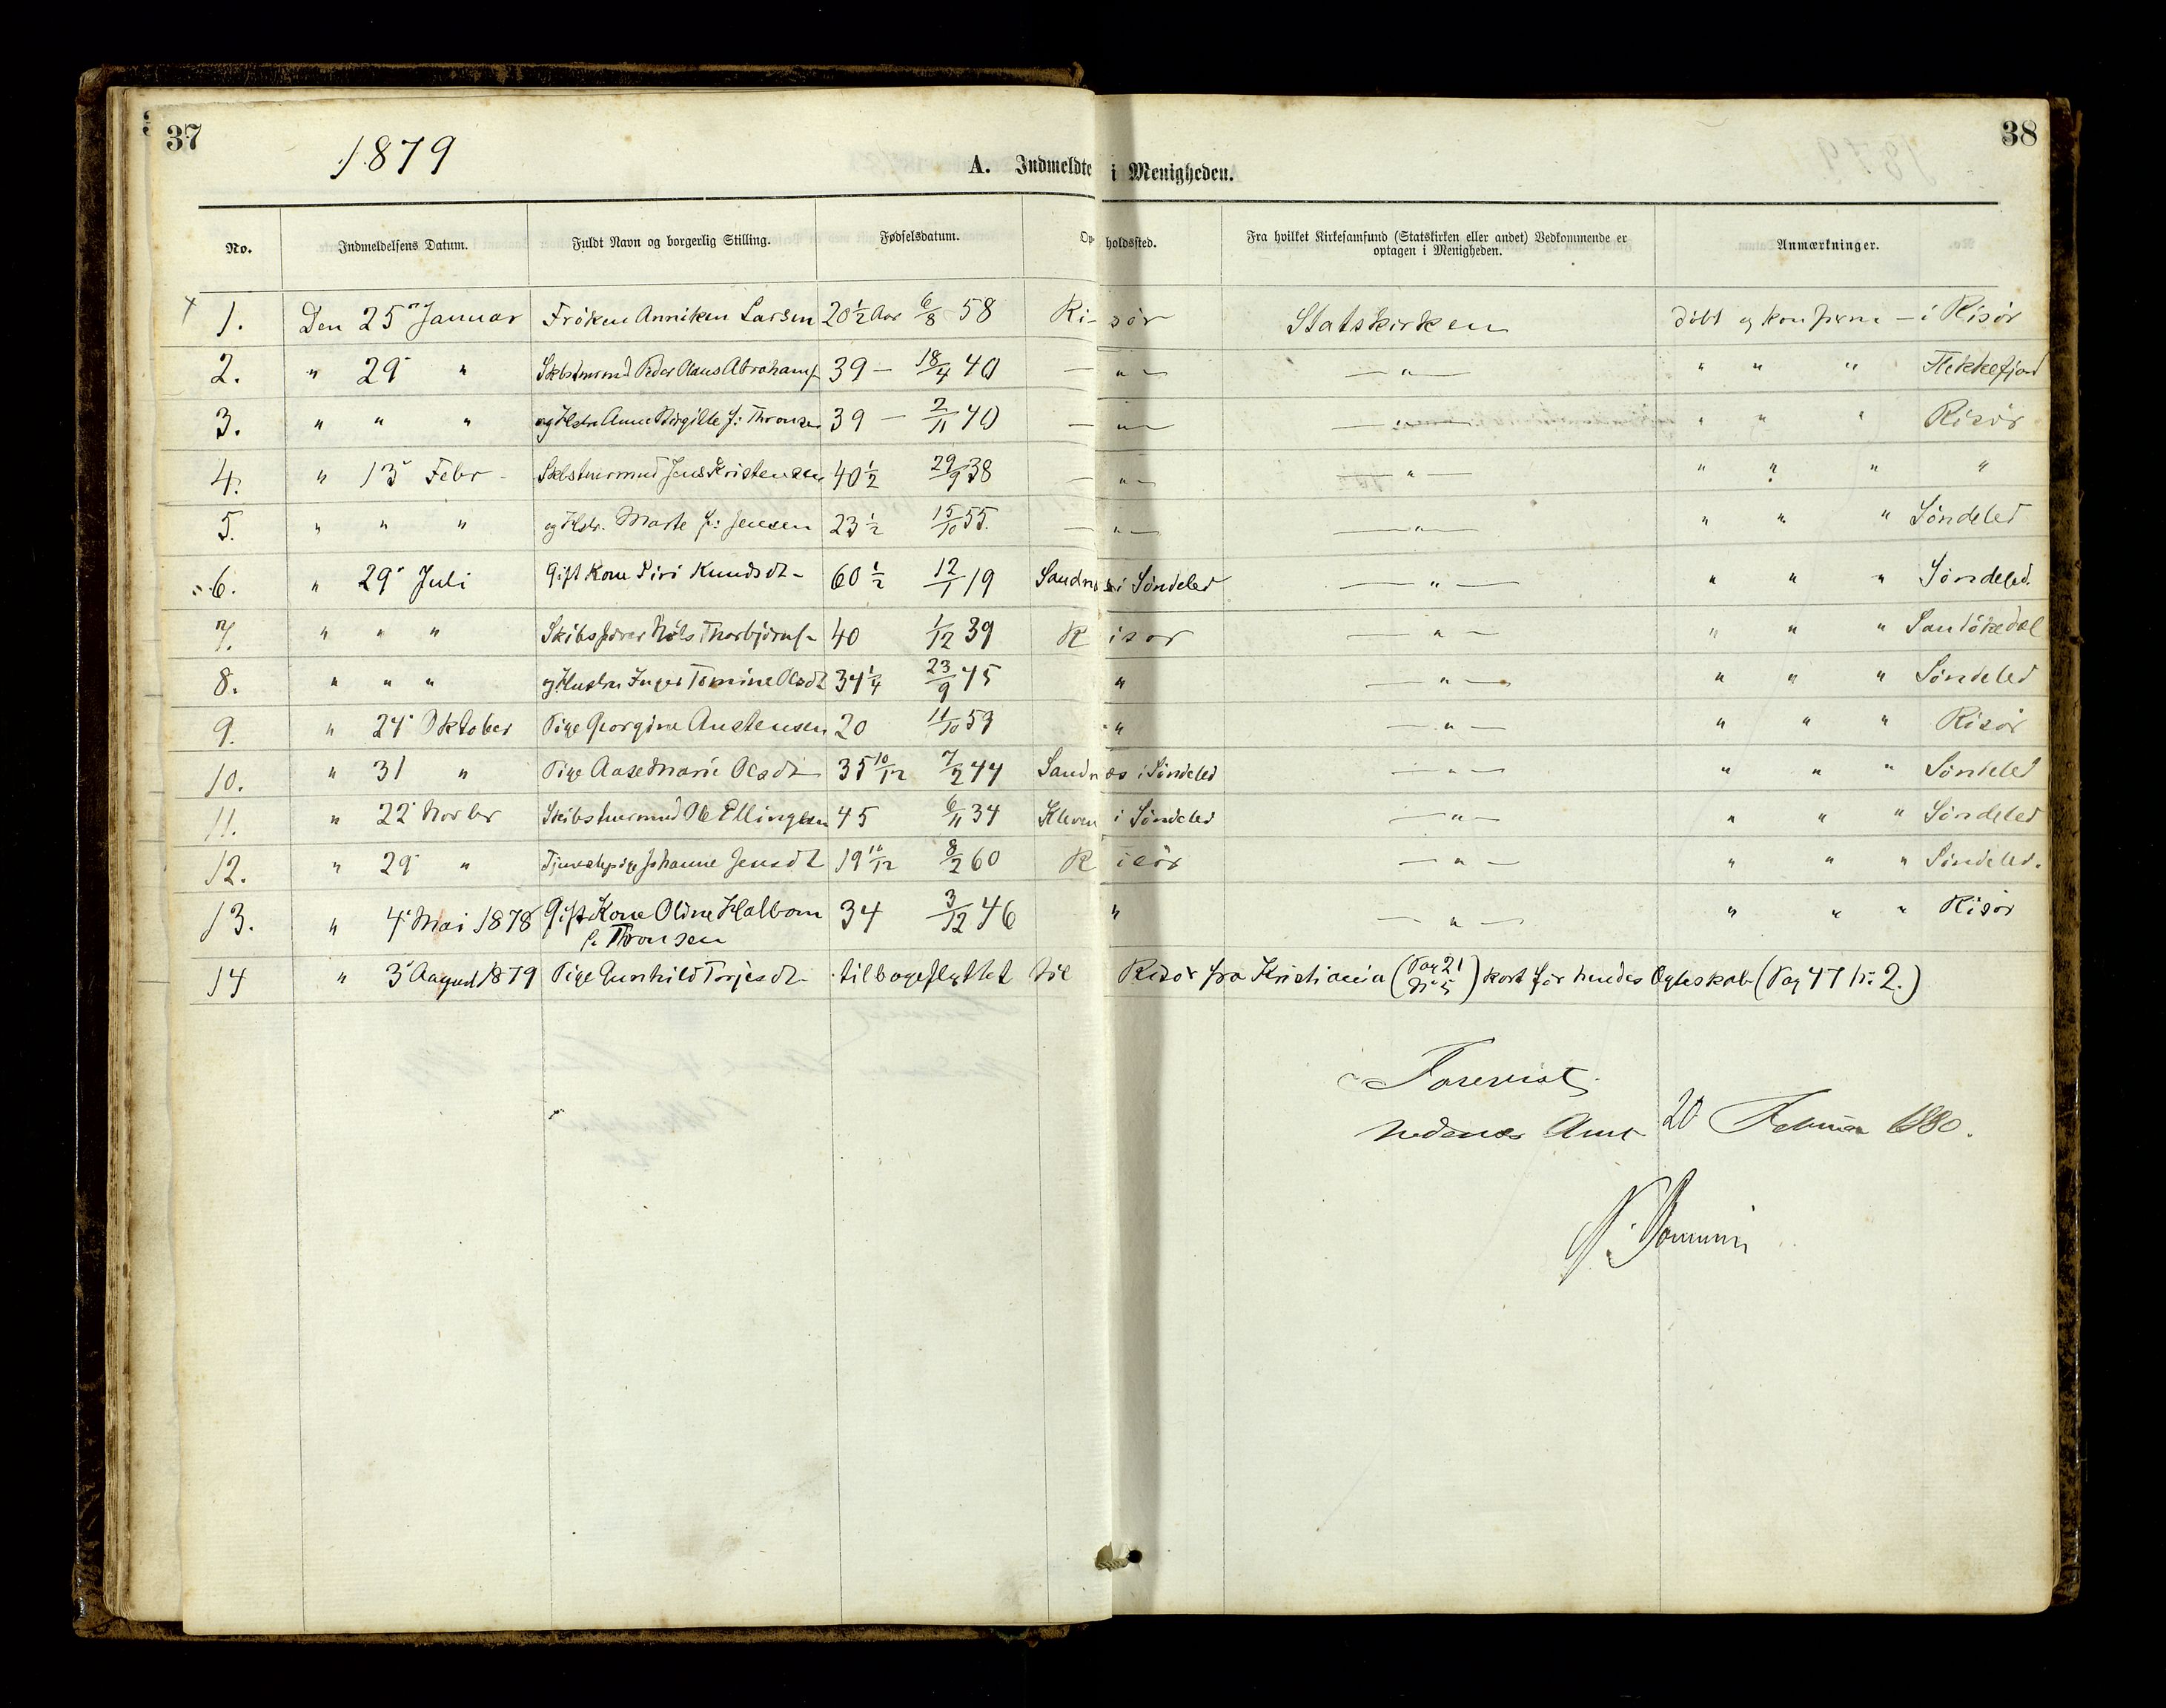 37
38
1879
A. Indmeldte i Menigheden.
No. Indmeldelsens Datum. Fuldt Navn og borgerlig Stilling. Fødselsdatum. Opholdssted. Fra hvilket Kirkesamfund (Statskirken eller andet) Vedkommende er optagen i Menigheden. Anmærkninger.
1. Den 25 Januar Fröken Anniken Larsen 20½ Aar 6/8 58 Ri-sör Statskirken döbt og konfirm — i Risör
2. " 29 " Skbstmrmd Peder Claus Abrahams- 39 — 18/4 40 — " — — " — " " " Flekkefjord
3. " " " og Hstr Anne Birgitte f: Thronsen 39 — 2/11 40 — " — — " — " " " Risör
4. " 13 Febr - Skbstmrmnd Jens Kristensen 40½ 29/9 38 — " — — " — " " " "
5. " " " og Hstr. Marte f: Jensen 23½ 15/10 55. — " — — " — " " " Söndeled
6. " 29 Juli Gift Kone Siri Knudsdt- 60½ 12/1 19 Sandnes i Söndeled — " — " " " Söndeled.
7. " " " Skibsförer Nils Thorbjörns- 40 1/12 39 Risör — " — " " " Sandökedal
8. " " " og Hustru Inger Tomine Olsdt 34¼ 23/9 45 " — " — " " " Söndeled
9. " 24 Oktober Pige Georgine Austensen 20 11/10 59 " — " — " " " Risör
10. " 31 " Pige Aase Marie Olsdt 35 10/12 7/2 44 Sandnes i Söndeled — " — " " " Söndeled
11. " 22 Novbr Skibstmrmnd Ole Ellingsen 45 6/11 34 Kleven i Söndeled — " — " " " Söndeled
12. " 29 " Tjenestepige Johanne Jensdt 19 10/12 8/2 60 Risör — " — " " " Söndeled.
13. " 4 Mai 1878 Gift Kone Oline Halborn 34 3/12 46 " — " — " " " Risör
f: Thronsen
14 " 3 August 1879 Pige Gunhild Torjesdt- tilbageflyttet til Risör fra Kristiania (Pag 21 No 5) kort för hendes Egteskab (Pag 47 No 2.)
Forevist.
Nedenes Amt 20 Februar 1880.